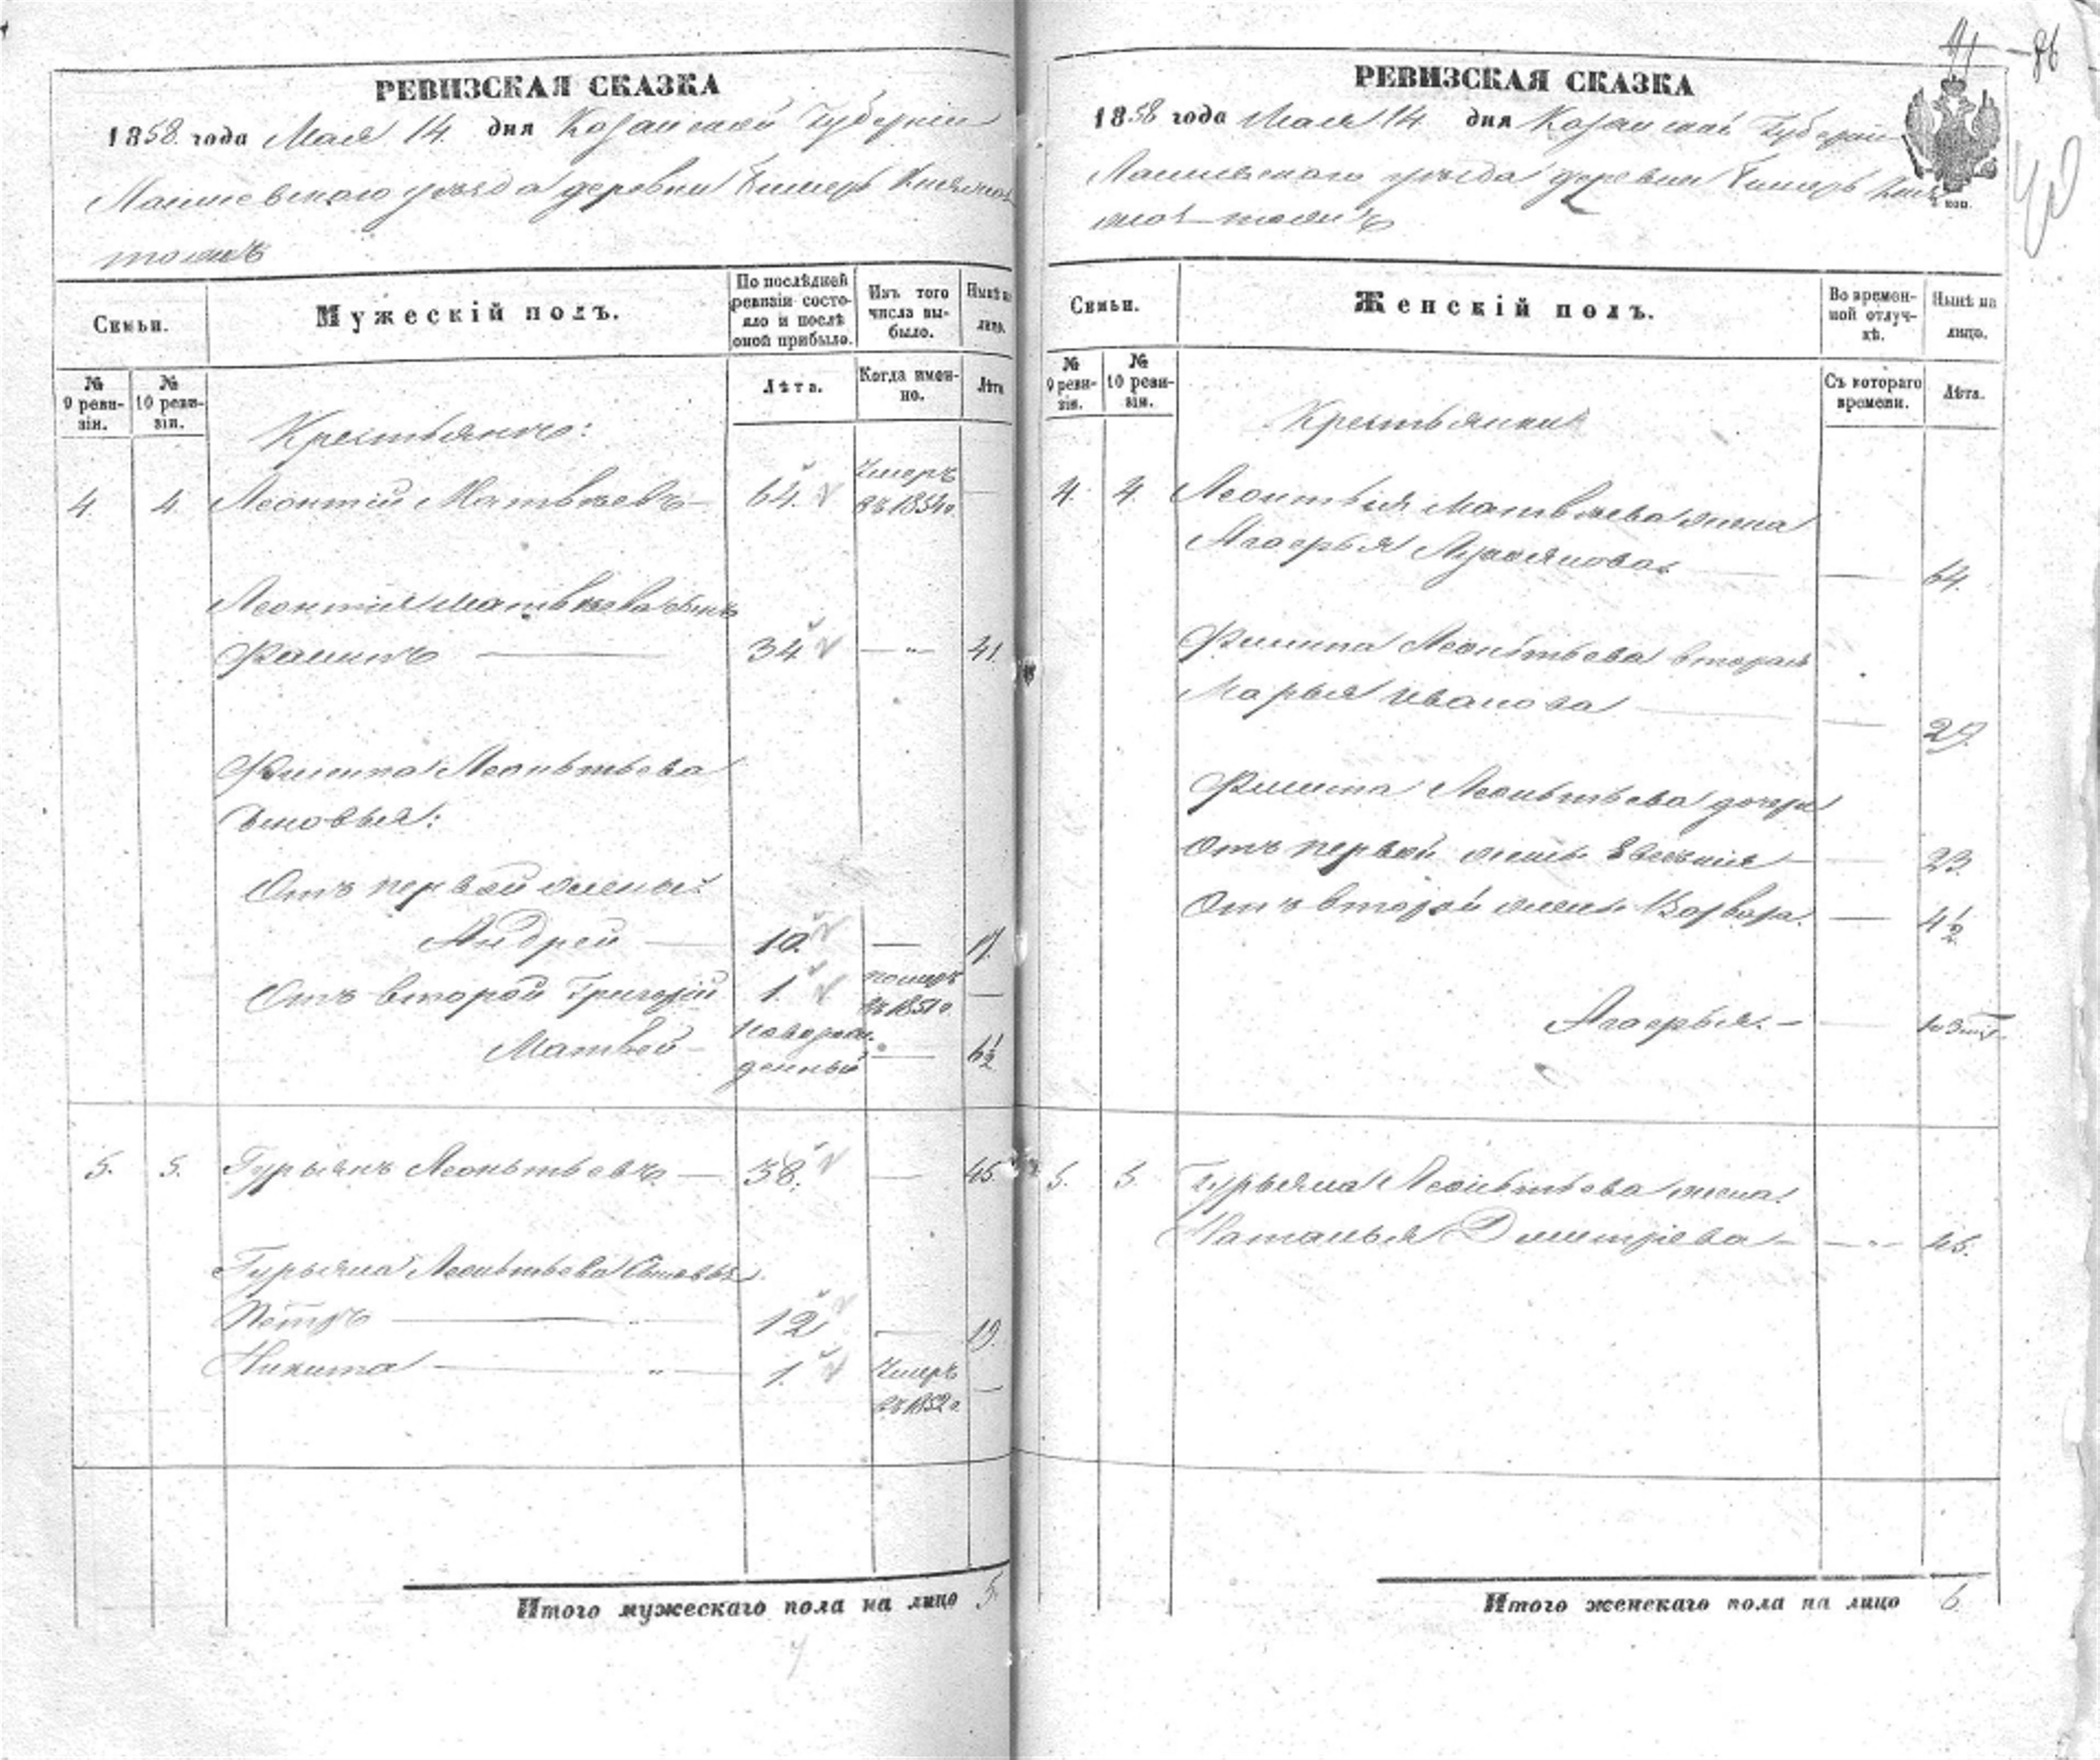 РЕВИЗСКАЯ СКАЗКА
1858 года Мая 14 дня Казанской Губернии
Лаишевского уезда деревни Княже
РЕВИЗСКАЯ СКАЗКА
1858 года Мая 14 дня Казанской Губернии
Лаишевского уезда деревни
Семьи.
Мужескій полъ.
По послѣдней ревизіи состояло и послѣ оной прибыло.
Изъ того числа выбыло.
Нынѣ на лицо.
№ 9 ревизіи.
№ 10 ревизіи.
Лѣта.
Когда именно.
Лѣта
Крестьяне:
4. 4. Леонтій Матвѣевъ 64. Умеръ въ 1854г.
Леонтия Матвѣева сынъ
Филипъ 34 — 41.
Филипа Леонтьева
Сыновья:
Отъ первой жены:
Андрей 10. — 17.
Отъ второй Григорій 1. померъ въ 1851г.
Матвей новорожденный — 6½
5. 5. Гурьянъ Леонтьевъ 38. — 45.
Гурьяна Леонтьева Сыновья
Петръ 12 — 19.
Никита 1. Умеръ въ 1852г.
Итого мужескаго пола на лицо 5.
7
41 86
40
Семьи.
Женскій полъ.
Во временной отлучкѣ.
Нынѣ на лицо.
№ 9 ревизіи.
№ 10 ревизіи.
Съ котораго времени.
Лѣта.
Крестьянки
4. 4. Леонтья Матвѣева жена
Лукоянова — 64.
Филипа Леонтьева вторая
Марья Иванова — 29.
Филипа Леонтьева дочери
Отъ первой жены Евгения — 23.
Отъ второй жены Варвара. — 4½
5. 5. Гурьяна Леонтьева жена
Наталья Дмитриева — 45.
Итого женскаго пола на лицо 6.